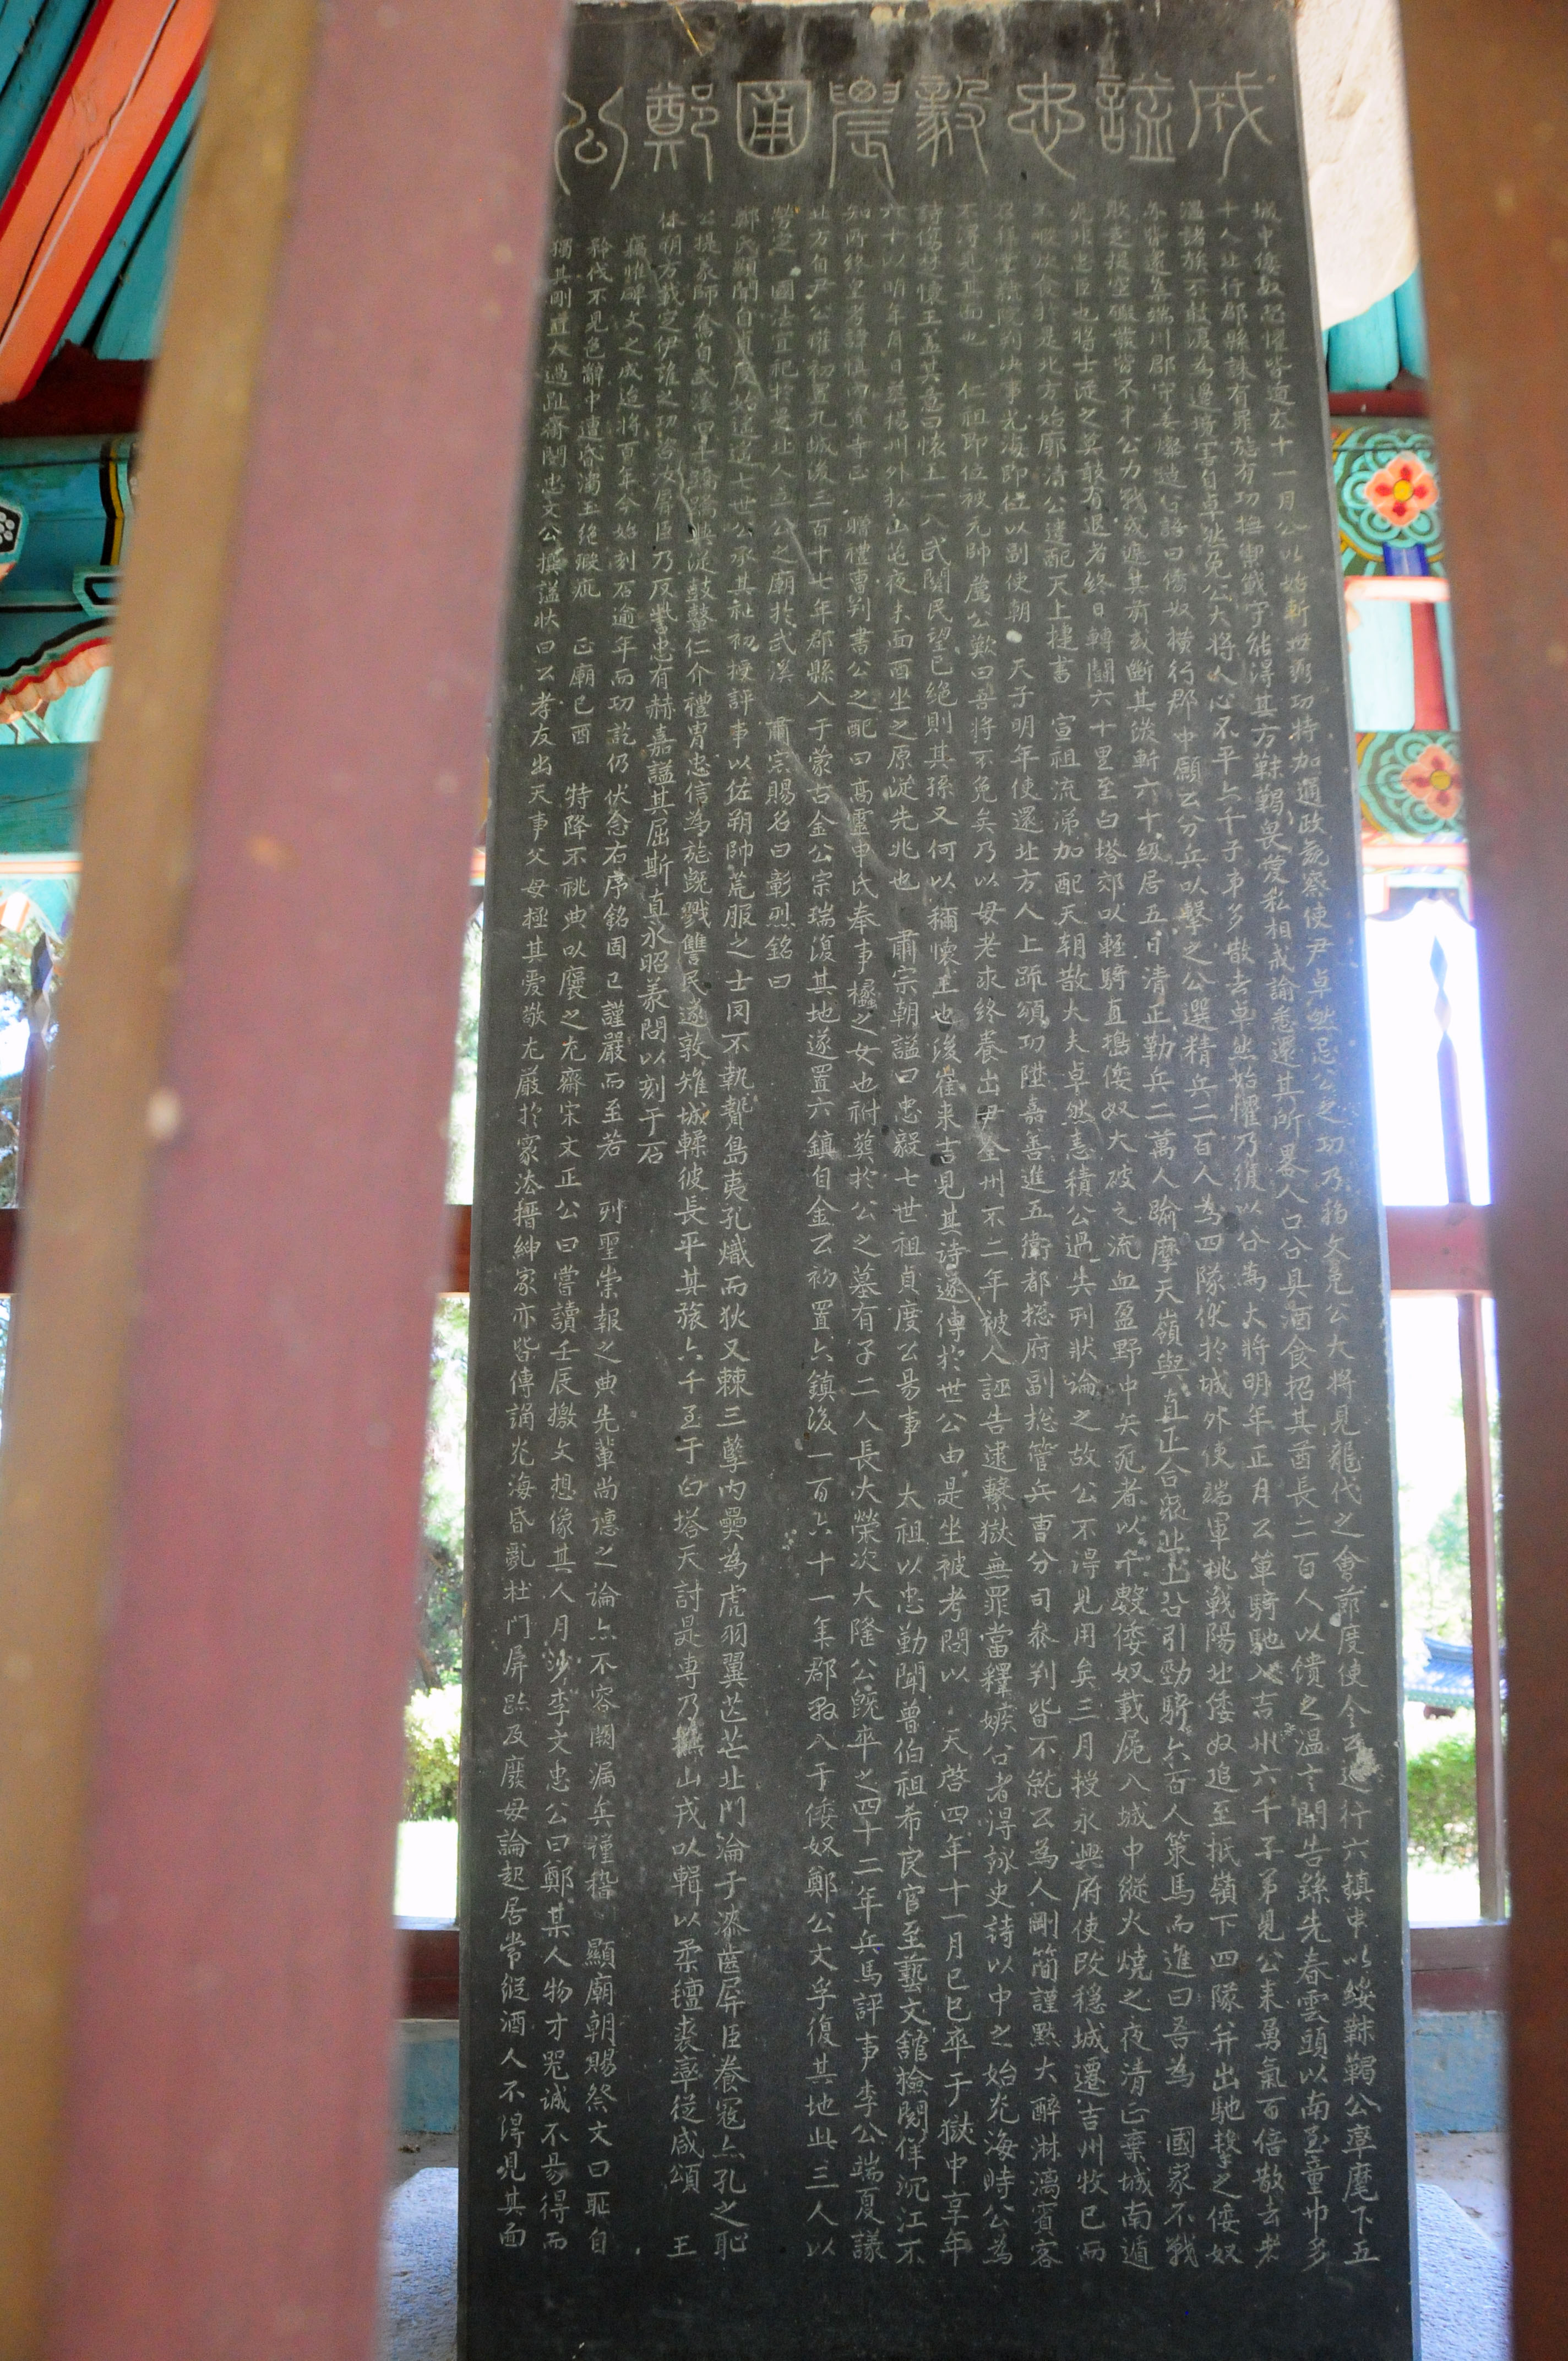 謚忠毅農圃鄭公
城中倭奴恐懼皆遁去十一月公以 功特加通政觀察使尹卓然忌公之功乃 公大將見龍代之會節度使令公 行六鎮申以綏靺鞨公率麾下五
十人北行郡縣誅有罪旌有功撫 戰守能得其方靺鞨衆愛私相戒諭悉還其所畧人口公具酒食招其酋長二百人以饋之溫言開告 先春雲頭以南至童巾多
溫諸族不敢復為邊場害自卓然免公大將人心不平六千子弟多散去卓然始懼乃復以公為大將明年正月公單騎馳入吉州六千子弟見公來勇氣百倍散去者
亦皆還 端川郡守姜燦 曰倭奴橫行郡中願公分兵以擊之公選精兵二百人為四隊伏於城外使端軍挑戰陽北倭奴追至 嶺下四隊幷出馳擊之倭奴
敗走 皆不中公力戰 其前或斷其後斬六十級居五日清正勒兵二萬人踰摩天嶺與直正合衆 公引勁騎六百人策馬而進曰吾為 國家不戰
死非忠臣也將士從之莫敢有退者終日轉鬪六十里至白塔郊以輕騎直擣倭奴大破之流血盈野中矢死者以千數倭奴載屍入城中縱火燒之夜清正棄城南遁
不 飲食於是北方始廓清公遣配天上捷書 宣祖流涕加配天朝散大夫卓然恚積公過失列狀論之故公不得見用矣三月授永興府使改穩城遷吉州牧已而
判決事光海即位以副使朝 天子明年使還北方人上疏頌功陞嘉善進五衛都摠府副摠管兵曹分司參判皆不就公為人剛簡謹黙大醉淋漓賓客
不得見其面也 仁祖即位被元帥薦公歎曰吾將不免矣乃以母老求終養出尹全州不二年被人誣告逮繫獄無罪當釋嫉公者得詠史詩以中之始光海時公為
詩傷楚懷王 其意曰懷王一入武關民望已絕則其孫又何以稱懷王也後崔來吉見其詩遂傳於世公由是坐被考問以 天啓四年十一月己巳卒于獄中享年
六十以明年月日葬楊州外松山 夜未面酉坐之原從先兆也 肅宗朝謚曰忠毅七世祖貞度公昜事 太祖以忠勤聞曾伯祖希良官至藝文舘檢閱佯沉江不
知所終皇考諱愼內資寺正 贈禮曹判書公之配曰高靈申氏奉事 之女也祔葬於公之墓有子二人長大榮次大隆公旣卒之四十二年兵馬評事李公端夏議
北方自尹公瓘初置九城後三百十七年郡縣入于蒙古金公宗瑞復其地遂置六鎮自金公初置六鎮後一百六十一年郡縣入于倭奴鄭公文孚復其地此三人以
勞定 國法宜祀於是北人立公之廟於武溪 肅宗賜名曰彰烈銘曰
鄭氏顯聞自貞度始逶迤七世公承其祉初授評事以左朔帥荒服之士罔不執贄島夷孔熾而狄又棘三孼內 為虎羽翼芒芒北門淪于漆齒屛臣養寇亦孔之恥
公提豪師奮自武溪 從鼓鼙仁介禮胄忠信為旌旣戮讐民遂敦雉城轢彼長平其旅六千至于白塔天討是專乃 山戎以輯以柔 裘 從咸頌 王
休朔方載定伊誰之功咨汝屛臣乃反 忠有赫嘉謚其屈斯直永昭羕問以刻于石
竊惟碑文之成迨將百年今始刻石逾年而功訖仍伏念右序銘固已謹嚴而至若 列聖崇報之典先輩尚德之論亦不容闕漏矣謹稽 顯廟朝賜祭文曰恥自
矜伐不見色辭中遭昏濁玉絶瑕疵 正廟己酉 特降不祧典以襃之尤齋宋文正公曰嘗讀壬辰檄文想像其人月沙李文忠公曰鄭某人物才器誠不易得而
獨其剛直太過趾齋閔忠文公撰謚狀曰公孝友出天事父母極其愛敬尤嚴於家法搢紳家亦皆傳誦光海昏亂杜門屏跡及廢母論起居常縱酒人不得見其面